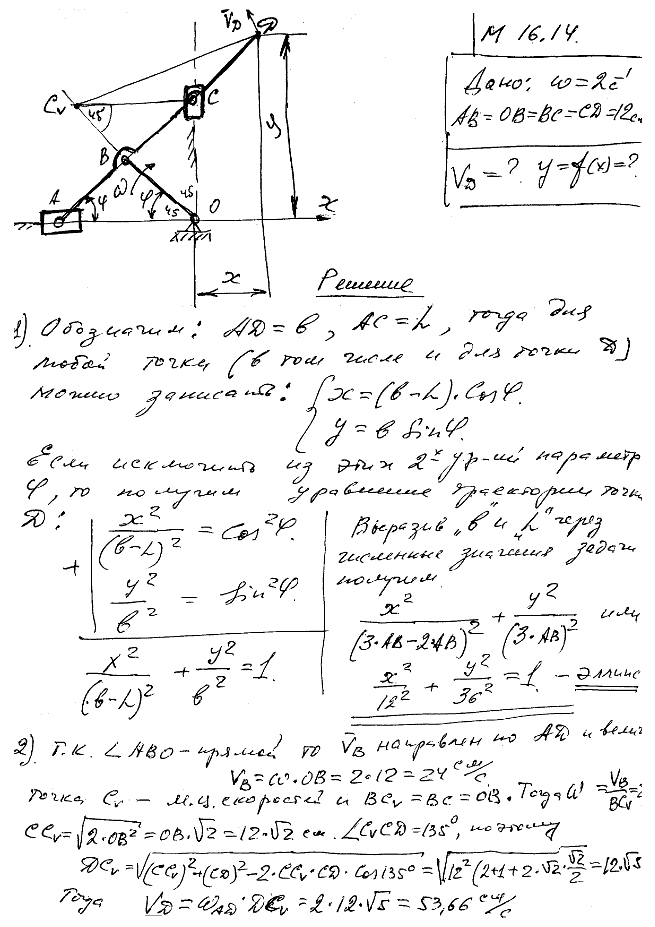 М 16.14.
Дано: ω=2с⁻¹
АВ=ОВ=ВС=СD=12см
V_D=? y=f(x)=?
V̄_D D
C_v 45° C
y
B
ω
A φ φ 45 45 O
x
x
Решение
1). Обозначим: AD=в, AC=L, тогда для
любой точки (в том числе и для точки D)
можно записать: { x=(в-L)·Cosφ.
y=в Sinφ.
Если исключить из этих 2х ур-ий параметр
φ, то получим уравнение траектории точки
D:
+ | x²/(в-L)² = Cos²φ.
y²/в² = Sin²φ.
x²/(в-L)² + y²/в² = 1.
Выразив „в" и „L" через
численные значения задачи
получим.
x²/(3·АВ-2АВ)² + y²/(3·АВ)² или
x²/12² + y²/36² = 1. - эллипс
2). Т.к. ∠ АВО - прямой то V̄_B направлен по AD и велич
V_B=ω·ОВ=2·12=24 см/с
точка C_v - м.ц.скоростей и BC_v=BC=OB. Тогда ω=V_B/BC_v=2
CC_v=√2·OB²=OB·√2=12·√2 см. ∠C_vCD=135°, поэтому
DC_v=√(CC_v)²+(CD)²-2·CC_v·CD·Cos135°=√12²(2+1+2·√2·√2/2=12·√5
Тогда V_D=ω_AD·DC_v=2·12·√5=53,66 см/с